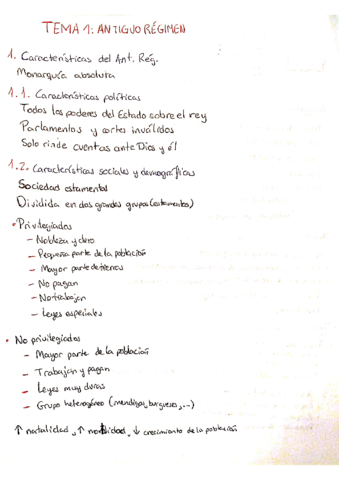 TEMA 1: ANTIGUO RÉGIMEN
1. Características del Ant. Rég.
Monarquía absoluta
1.1. Características políticas
Todos los poderes del Estado sobre el rey
Parlamentos y cortes inválidos
Solo rinde cuentas ante Dios y él
1.2. Características sociales y demográficas
Sociedad estamental
Dividida en dos grandes grupos (estamentos)
• Privilegiados
- Nobleza y clero
- Pequeña parte de la población
- Mayor parte de tierras
- No pagan
- No trabajan
- Leyes especiales
• No privilegiados
- Mayor parte de la población
- Trabajan y pagan
- Leyes muy duras
- Grupo heterogéneo (mendigos, burgueses, ...)
↑ mortalidad, ↑ natalidad, ↓ crecimiento de la población